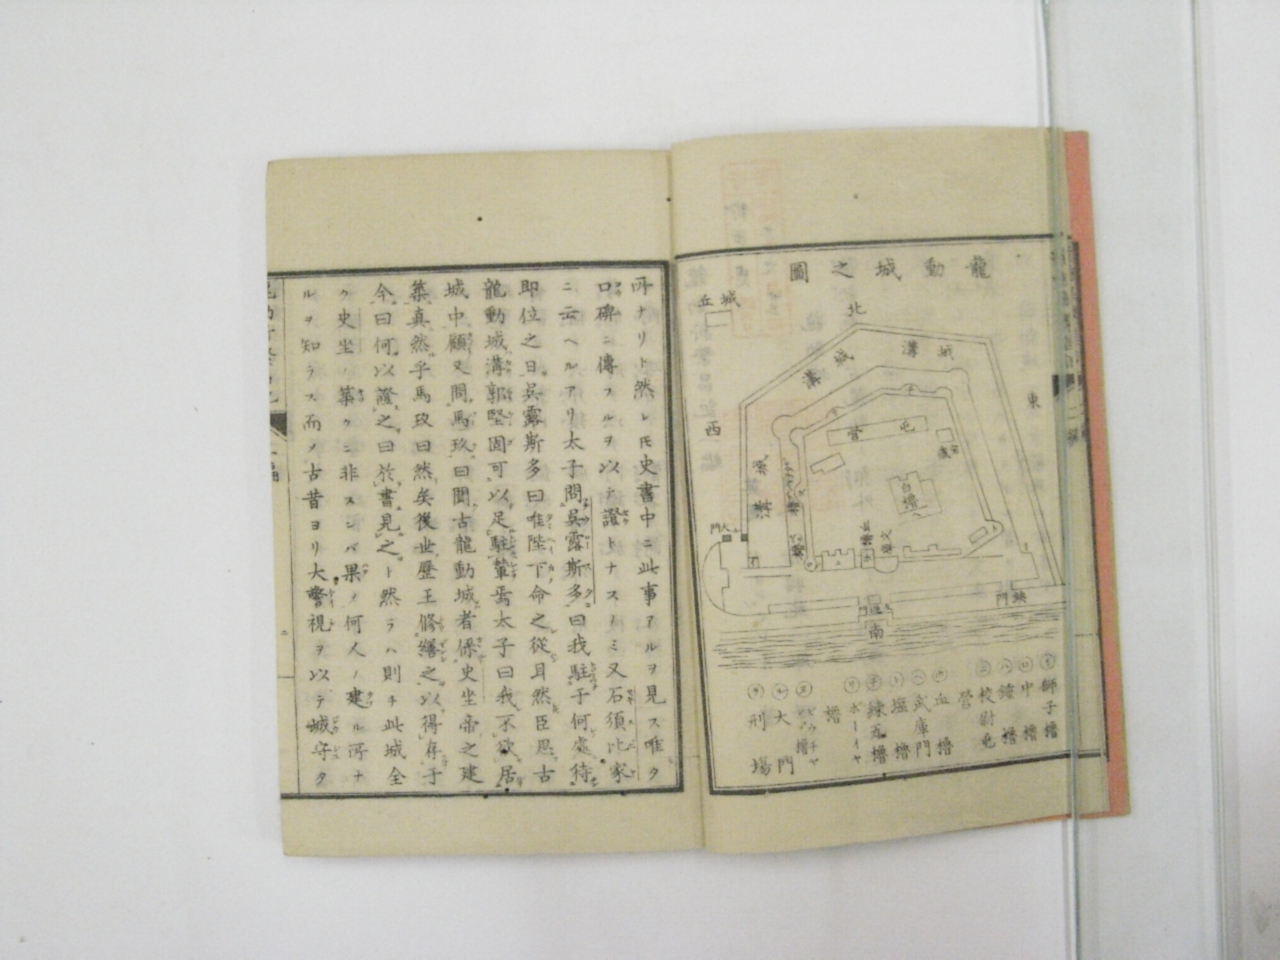 龍動城之圖
北
城丘
城溝
城溝
東
西
屯営
白櫓
大門
鉄門
南
㋑獅子櫓
㋺中櫓
㋩鐘櫓
㋥校尉屯営
血櫓
㋬武庫門
㋣塩櫓
㋠練瓦櫓
㋷ボーイヤ櫓
㋸大門
㋾刑場
所ナリト然レ𪜈史書中ニ此事アルヲ見ス唯タ
口碑ニ傳フルヲ以テ證トナスノミ又石須比家
ニ云ヘルアリ太子問呉露斯多曰我駐于何處待
即位之日呉露斯多曰唯陛下命之從耳然臣思古
龍動城溝郭堅固可以足駐輦焉太子曰我不欲居
城中顧又問馬玖曰聞古龍動城者保史坐帝之建
築真然乎馬玖曰然矣後世歴王修繕之以得存于
今曰何以證之曰於書見之ト然ラハ則チ此城全
ク史坐ノ築クニ非スンバ果ノ何人ノ建ル所ナ
ルヲ知ラス而ノ古昔ヨリ大警視ヲ以テ城守タ